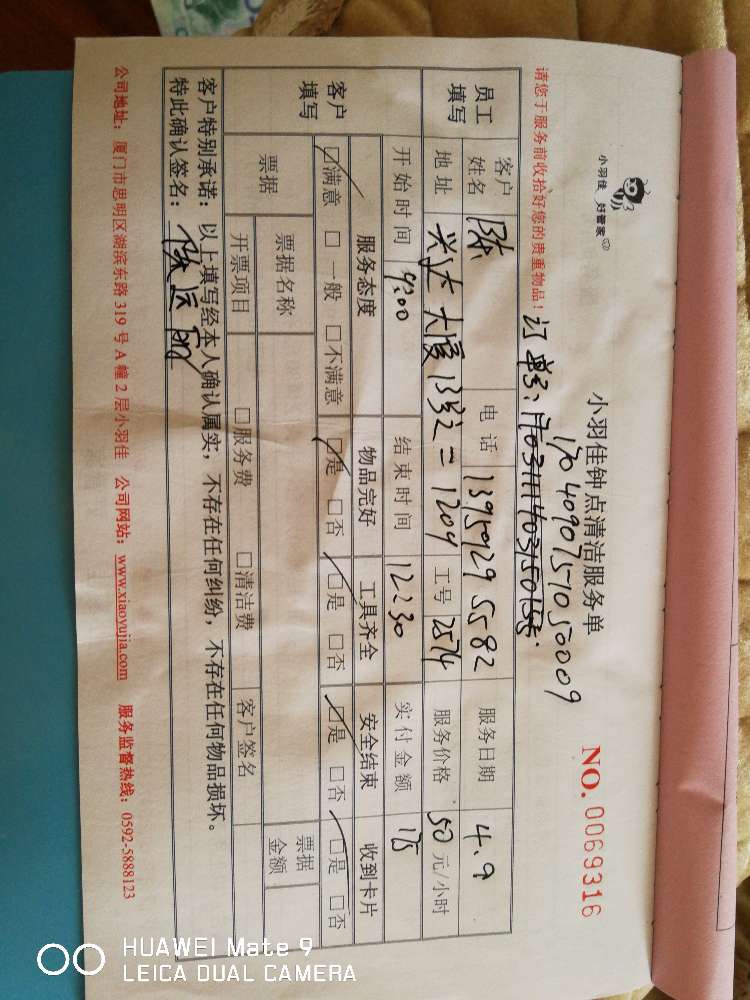 小羽佳 好管家
小羽佳钟点清洁服务单
NO. 0069316
1704090751050009
请您于服务前收拾好您的贵重物品！
订单号：
员工填写
客户姓名 陈 电话 13959295582 服务日期 4.9
地址 兴达大厦13号之二1204 工号 2574 服务价格 50元/小时
客户填写
开始时间 9:00 结束时间 12:30 实付金额 175
服务态度 物品完好 工具齐全 安全结束 收到卡片
☑满意 □一般 □不满意 ☑是 □否 ☑是 □否 ☑是 □否 ☑是 □否
票据 票据名称 票据金额
开票项目 □服务费 □清洁费 客户签名
客户特别承诺：以上填写经本人确认属实，不存在任何纠纷，不存在任何物品损坏。
特此确认签名：
公司地址：厦门市思明区湖滨东路319号A幢2层小羽佳 公司网站：www.xiaoyujia.com 服务监督热线：0592-5888123
HUAWEI Mate 9
LEICA DUAL CAMERA